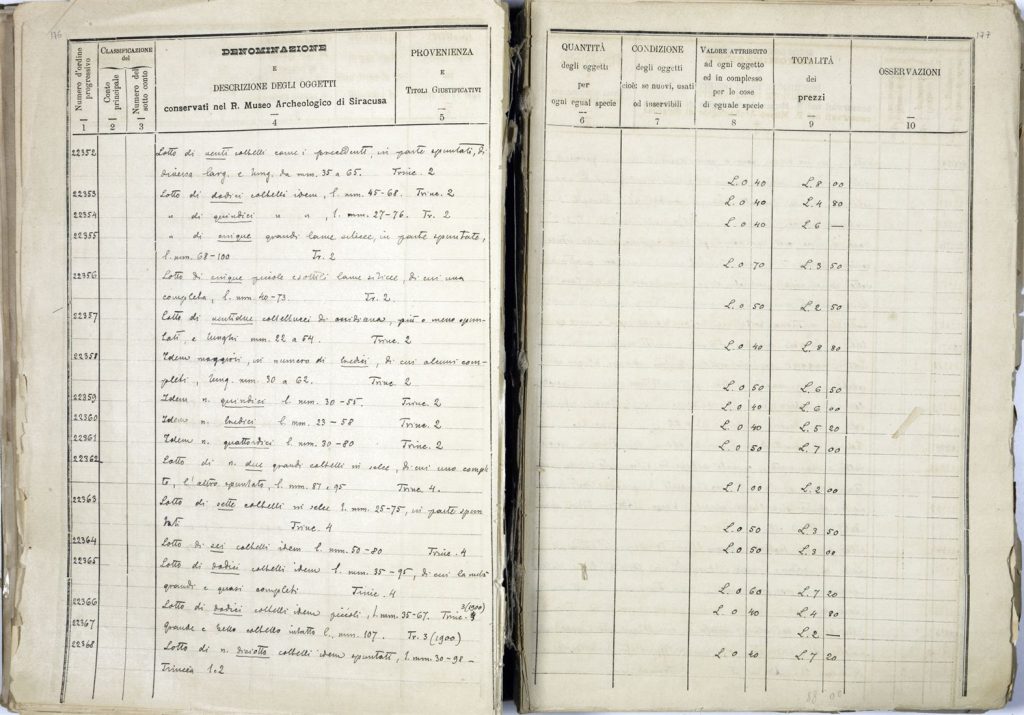 176
Numero d'ordine progressivo
CLASSIFICAZIONE
del
Conto principale
Numero del sotto conto
DENOMINAZIONE
E
DESCRIZIONE DEGLI OGGETTI
conservati nel R. Museo Archeologico di Siracusa
PROVENIENZA
E
TITOLI GIUSTIFICATIVI
1 2 3 4 5
22352 Lotto di venti coltelli come i precedenti, in parte spuntati, di
diversa larg. e lung. da mm. 35 a 65. Trinc. 2
22353 Lotto di dodici coltelli idem, l. mm. 45-68. Trinc. 2
22354 " di quindici " " , l. mm. 27-76. Tr. 2
22355 " di cinque grandi lame silicee, in parte spuntate,
l. mm. 68-100 Tr. 2
22356 Lotto di cinque piccole e sottili lame silicee, di cui una
completa, l. mm. 40-73. Tr. 2.
22357 Lotto di ventidue coltellucci di ossidiana, più o meno spun-
tati, e lunghi mm. 22 a 54. Trinc. 2
22358 Idem maggiori, in numero di tredici, di cui alcuni com-
pleti, lung. mm. 30 a 62. Trinc. 2
22359 Idem n. quindici l. mm. 30-55. Trinc. 2
22360 Idem n. tredici l. mm. 23-58 Trinc. 2
22361 Idem n. quattordici l. mm. 30-80 Trinc. 2
22362 Lotto di n. due grandi coltelli in selce, di cui uno comple-
to, l'altro spuntato, l. mm. 87 e 95 Trinc. 4.
22363 Lotto di sette coltelli in selce l. mm. 25-75, in parte spun
tati Trinc. 4
22364 Lotto di sei coltelli idem l. mm. 50-80 Trinc. 4
22365 Lotto di dodici coltelli idem l. mm. 35-95, di cui la metà
grandi e quasi completi Trinc. 4
22366 Lotto di dodici coltelli idem piccoli, l. mm. 35-67. Trinc. 3 (1900)
22367 Grande e bello coltello intatto l. mm. 107. Tr. 3 (1900)
22368 Lotto di n. diciotto coltelli idem spuntati, l. mm. 30-98 -
Trincea 1.2
177
QUANTITÀ
degli oggetti
per
ogni egual specie
CONDIZIONE
degli oggetti
cioè: se nuovi, usati
od inservibili
VALORE ATTRIBUITO
ad ogni oggetto
ed in complesso
per le cose
di eguale specie
TOTALITÀ
dei
prezzi
OSSERVAZIONI
6 7 8 9 10
L. 0 40 L. 8 00
L. 0 40 L. 4 80
L. 0 40 L. 6 —
L. 0 70 L. 3 50
L. 0 50 L. 2 50
L. 0 40 L. 8 80
L. 0 50 L. 6 50
L. 0 40 L. 6 00
L. 0 40 L. 5 20
L. 0 50 L. 7 00
L. 1 00 L. 2 00
L. 0 50 L. 3 50
L. 0 50 L. 3 00
L. 0 60 L. 7 20
L. 0 40 L. 4 80
L. 2 —
L. 0 40 L. 7 20
88 00